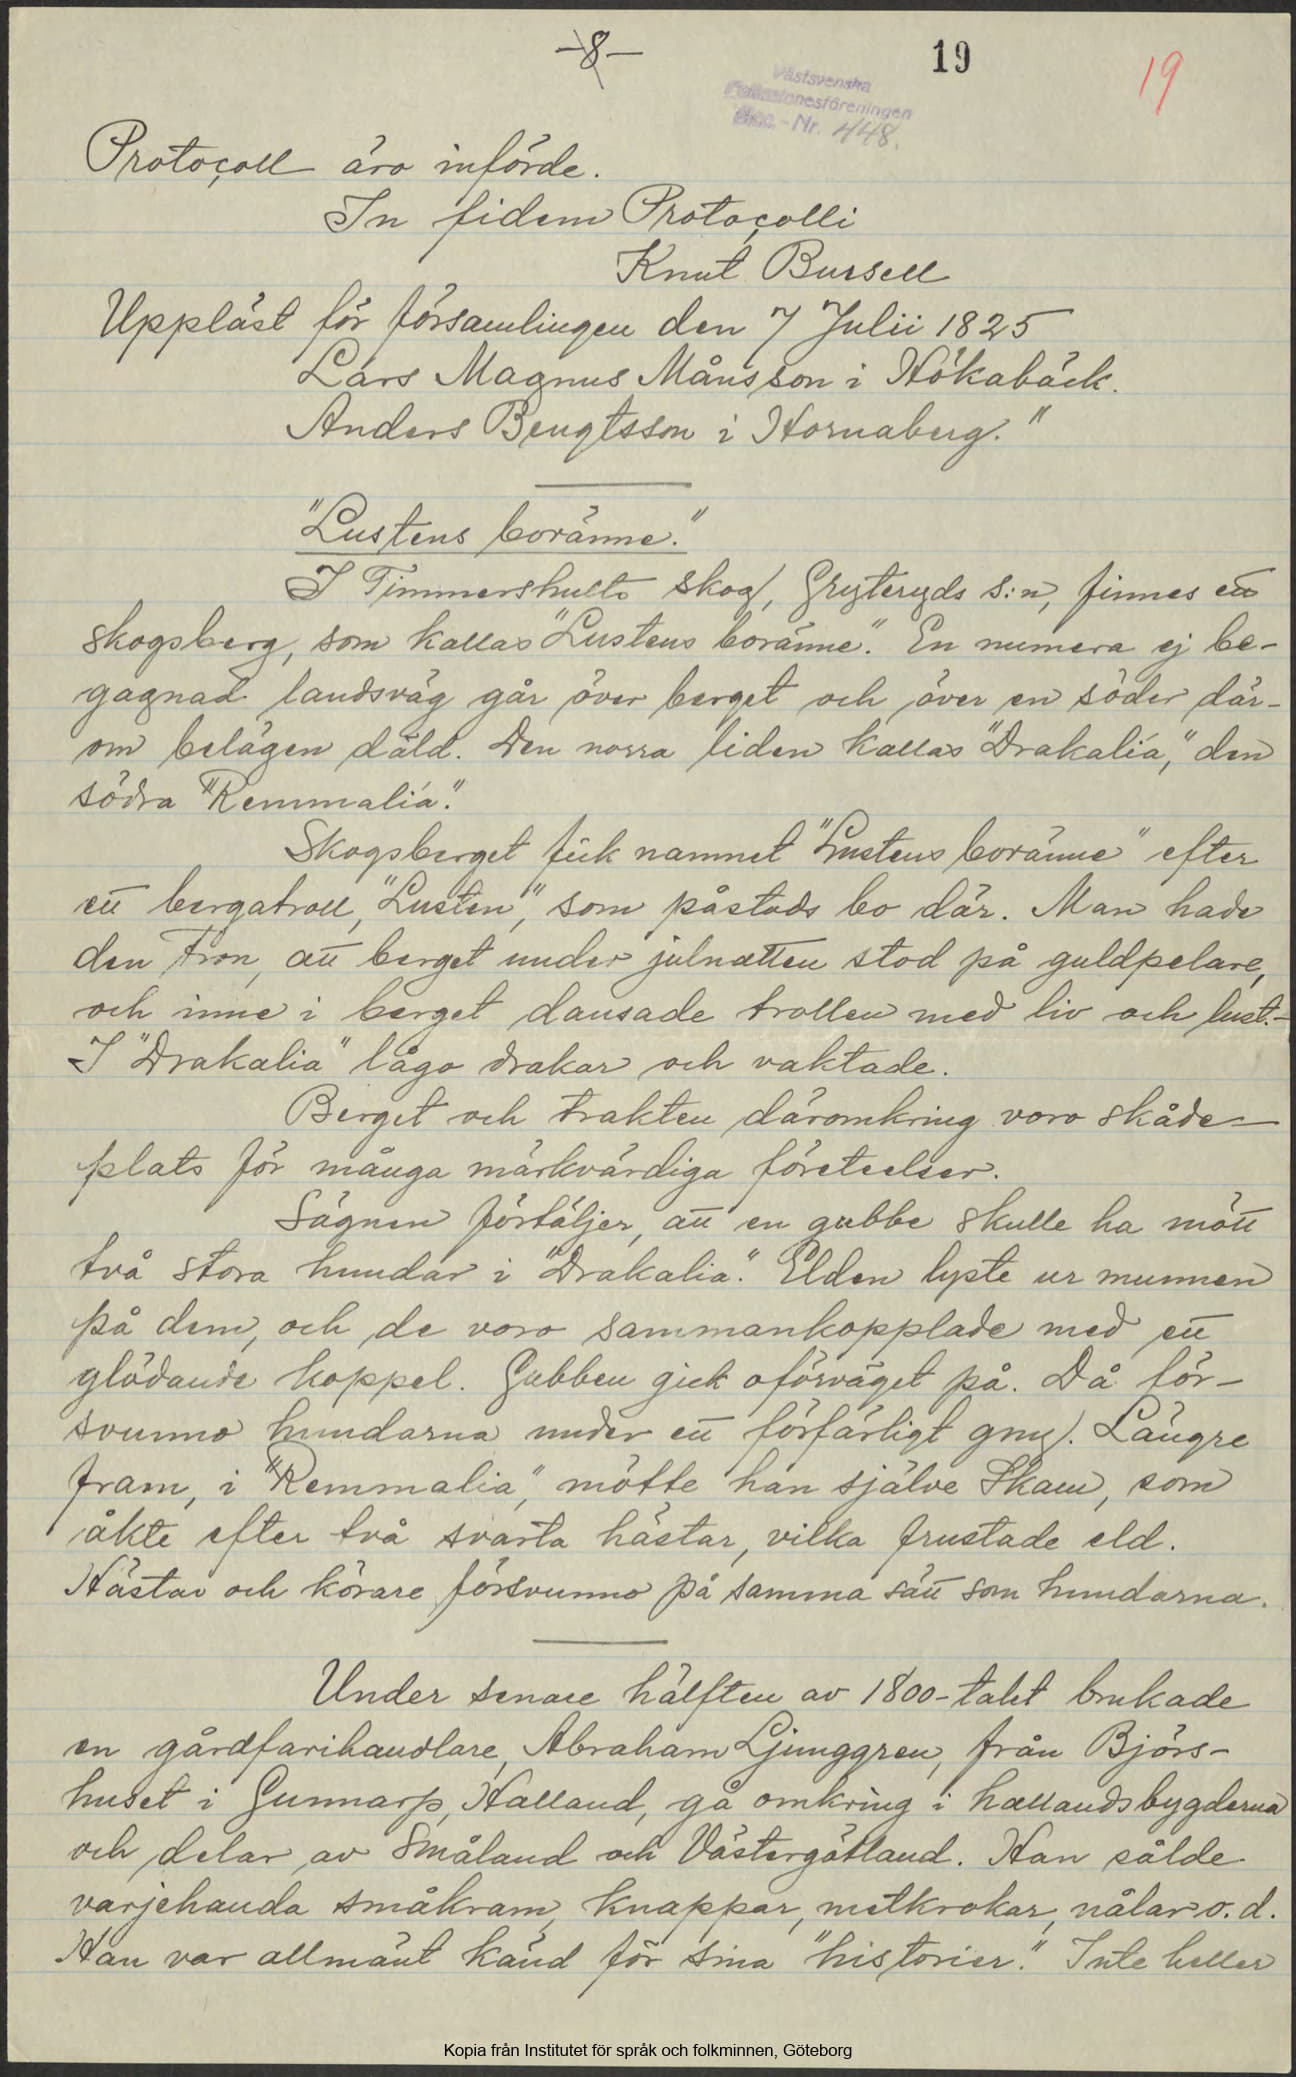 -8-
19
19
Västsvenska
Folkminnesföreningen
Acc. - Nr. 448.
Protocoll äro införde.
In fidem Protocolli
Knut Bursell
Uppläst för församlingen den 7 Julii 1825
Lars Magnus Månsson i Hökabäck.
Anders Bengtsson i Hornaberg."
"Lustens boränne."
I Timmershults skog, Gryteryds s:n, finnes ett
skogsberg, som kallas "Lustens boränne". En numera ej be-
gagnad landsväg går över berget och över en söder där-
om belägen däld. Den norra liden kallas "Drakalia", den
södra "Remmalia".
Skogsberget fick namnet "Lustens boränne" efter
ett bergatroll, "Lusten", som påstods bo där. Man hade
den tron, att berget under julnatten stod på guldpelare,
och inne i berget dansade trollen med liv och lust.-
I "Drakalia" lågo drakar och vaktade.
Berget och trakten däromkring voro skåde-
plats för många märkvärdiga företeelser.
Sägnen förtäljer, att en gubbe skulle ha mött
två stora hundar i "Drakalia". Elden lyste ur munnen
på dem, och de voro sammankopplade med ett
glödande koppel. Gubben gick oförväget på. Då för-
svunno hundarna under ett förfärligt gny. Längre
fram, i "Remmalia", mötte han själve Skam, som
åkte efter två svarta hästar, vilka frustade eld.
Hästar och körare försvunno på samma sätt som hundarna.
Under senare hälften av 1800-talet brukade
en gårdfarihandlare, Abraham Ljunggren, från Björs-
huset i Gunnarp, Halland, gå omkring i hallandsbygderna
och delar av Småland och Västergötland. Han sålde
varjehanda småkram, knappar, metkrokar, nålar o. d.
Han var allmänt känd för sina "historier." Inte heller
Kopia från Institutet för språk och folkminnen, Göteborg